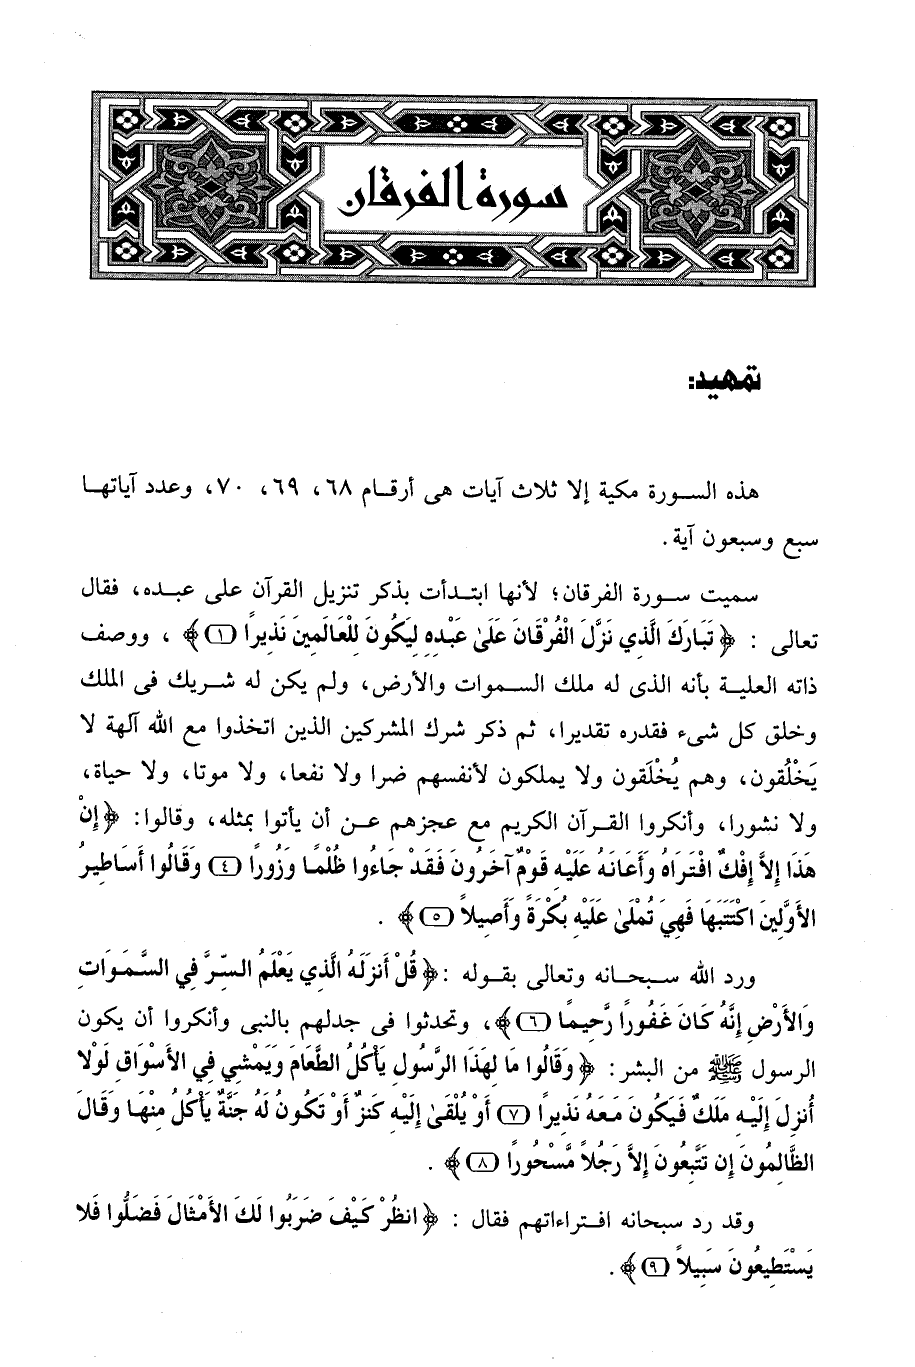 سورة الفرقان
تمهيد:
هذه السورة مكية إلا ثلاث آيات هى أرقام ٦٨، ٦٩، ٧٠، وعدد آياتها
سبع وسبعون آية.
سميت سورة الفرقان؛ لأنها ابتدأت بذكر تنزيل القرآن على عبده، فقال
تعالى : ﴿ تَبَارَكَ الَّذِي نَزَّلَ الْفُرْقَانَ عَلَىٰ عَبْدِهِ لِيَكُونَ لِلْعَالَمِينَ نَذِيرًا (١) ﴾ ، ووصف
ذاته العلية بأنه الذى له ملك السموات والأرض، ولم يكن له شريك فى الملك
وخلق كل شىء فقدره تقديرا، ثم ذكر شرك المشركين الذين اتخذوا مع الله آلهة لا
يَخْلُقون، وهم يُخْلَقون ولا يملكون لأنفسهم ضرا ولا نفعا، ولا موتا، ولا حياة،
ولا نشورا، وأنكروا القرآن الكريم مع عجزهم عن أن يأتوا بمثله، وقالوا: ﴿ إِنْ
هَذَا إِلاَّ إِفْكٌ افْتَرَاهُ وَأَعَانَهُ عَلَيْهِ قَوْمٌ آخَرُونَ فَقَدْ جَاءُوا ظُلْمًا وَزُورًا (٤) وَقَالُوا أَسَاطِيرُ
الأَوَّلِينَ اكْتَتَبَهَا فَهِيَ تُمْلَىٰ عَلَيْهِ بُكْرَةً وَأَصِيلاً (٥) ﴾ .
ورد الله سبحانه وتعالى بقوله : ﴿ قُلْ أَنزَلَهُ الَّذِي يَعْلَمُ السِّرَّ فِي السَّمَوَاتِ
وَالأَرْضِ إِنَّهُ كَانَ غَفُورًا رَّحِيمًا (٦) ﴾، وتحدثوا فى جدلهم بالنبى وأنكروا أن يكون
الرسول ﷺ من البشر: ﴿ وَقَالُوا مَا لِهَذَا الرَّسُولِ يَأْكُلُ الطَّعَامَ وَيَمْشِي فِي الأَسْوَاقِ لَوْلا
أُنزِلَ إِلَيْهِ مَلَكٌ فَيَكُونَ مَعَهُ نَذِيرًا (٧) أَوْ يُلْقَىٰ إِلَيْهِ كَنزٌ أَوْ تَكُونُ لَهُ جَنَّةٌ يَأْكُلُ مِنْهَا وَقَالَ
الظَّالِمُونَ إِن تَتَّبِعُونَ إِلاَّ رَجُلاً مَّسْحُورًا (٨) ﴾ .
وقد رد سبحانه افتراءاتهم فقال : ﴿ انظُرْ كَيْفَ ضَرَبُوا لَكَ الأَمْثَالَ فَضَلُّوا فَلا
يَسْتَطِيعُونَ سَبِيلاً (٩) ﴾ .